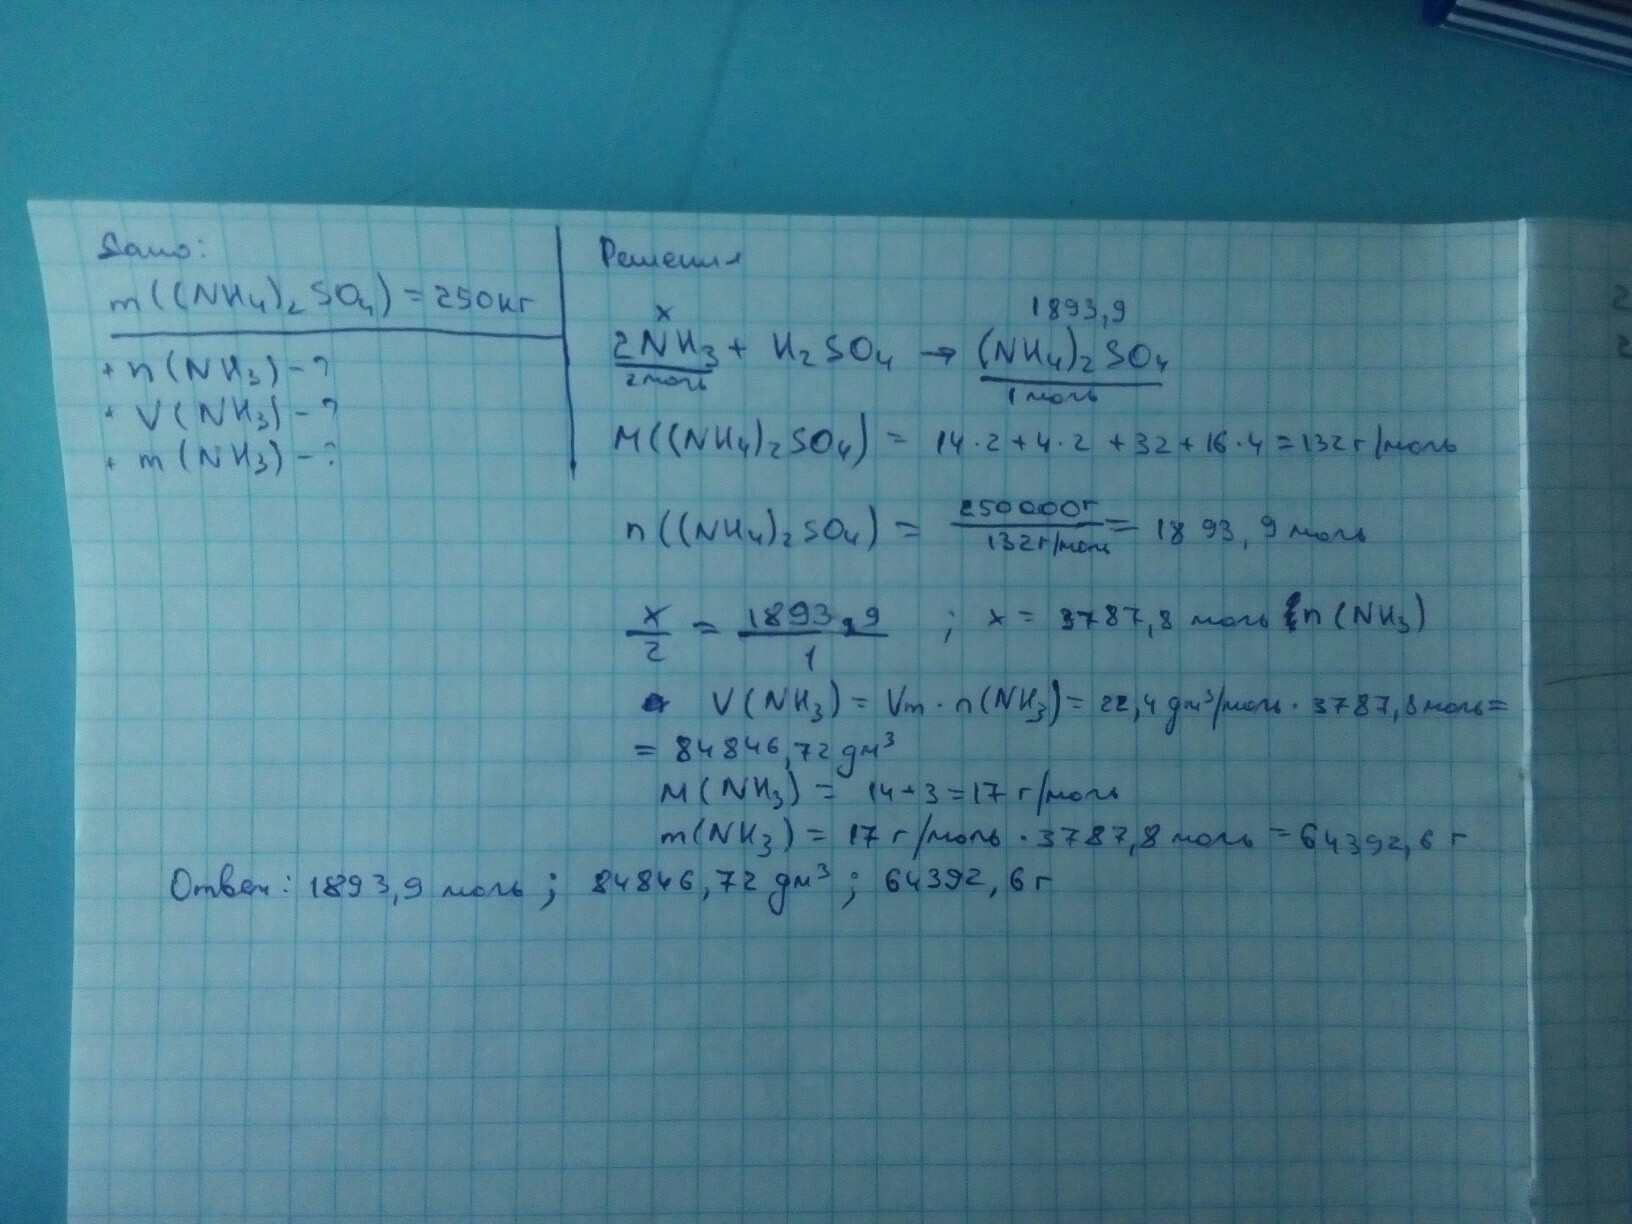 Дано:
m((NH4)2SO4) = 250кг
+ n(NH3) - ?
+ V(NH3) - ?
+ m(NH3) - ?
Решения
x 1893,9
2NH3 + H2SO4 → (NH4)2SO4
2моль 1моль
M((NH4)2SO4) = 14·2+4·2+32+16·4=132г/моль
n((NH4)2SO4) = 250000г/132г/моль = 1893,9 моль
x/2 = 1893,9/1 ; x = 3787,8 моль n(NH3)
V(NH3) = Vm · n(NH3) = 22,4 дм³/моль · 3787,8моль=
= 84846,72 дм³
M(NH3) = 14+3=17 г/моль
m(NH3) = 17 г/моль · 3787,8 моль = 64392,6 г
Ответ: 1893,9 моль ; 84846,72 дм³ ; 64392,6 г